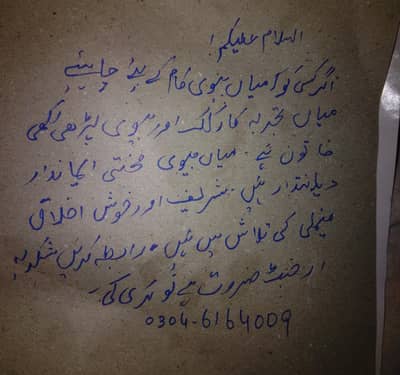 السلام علیکم!
اگر کسی کو میاں بیوی کام کے لیے چاہیئے
میاں تجربہ کار کک اور بیوی پڑھی لکھی
خاتون ہے۔ میاں بیوی محنتی ایماندار
دیانتدار ہیں۔ شریف اور خوش اخلاق
فیملی کی تلاش میں ہیں۔ رابطہ کریں شکریہ
ارجنٹ ضرورت ہے نوکری کی۔
0304-6164009